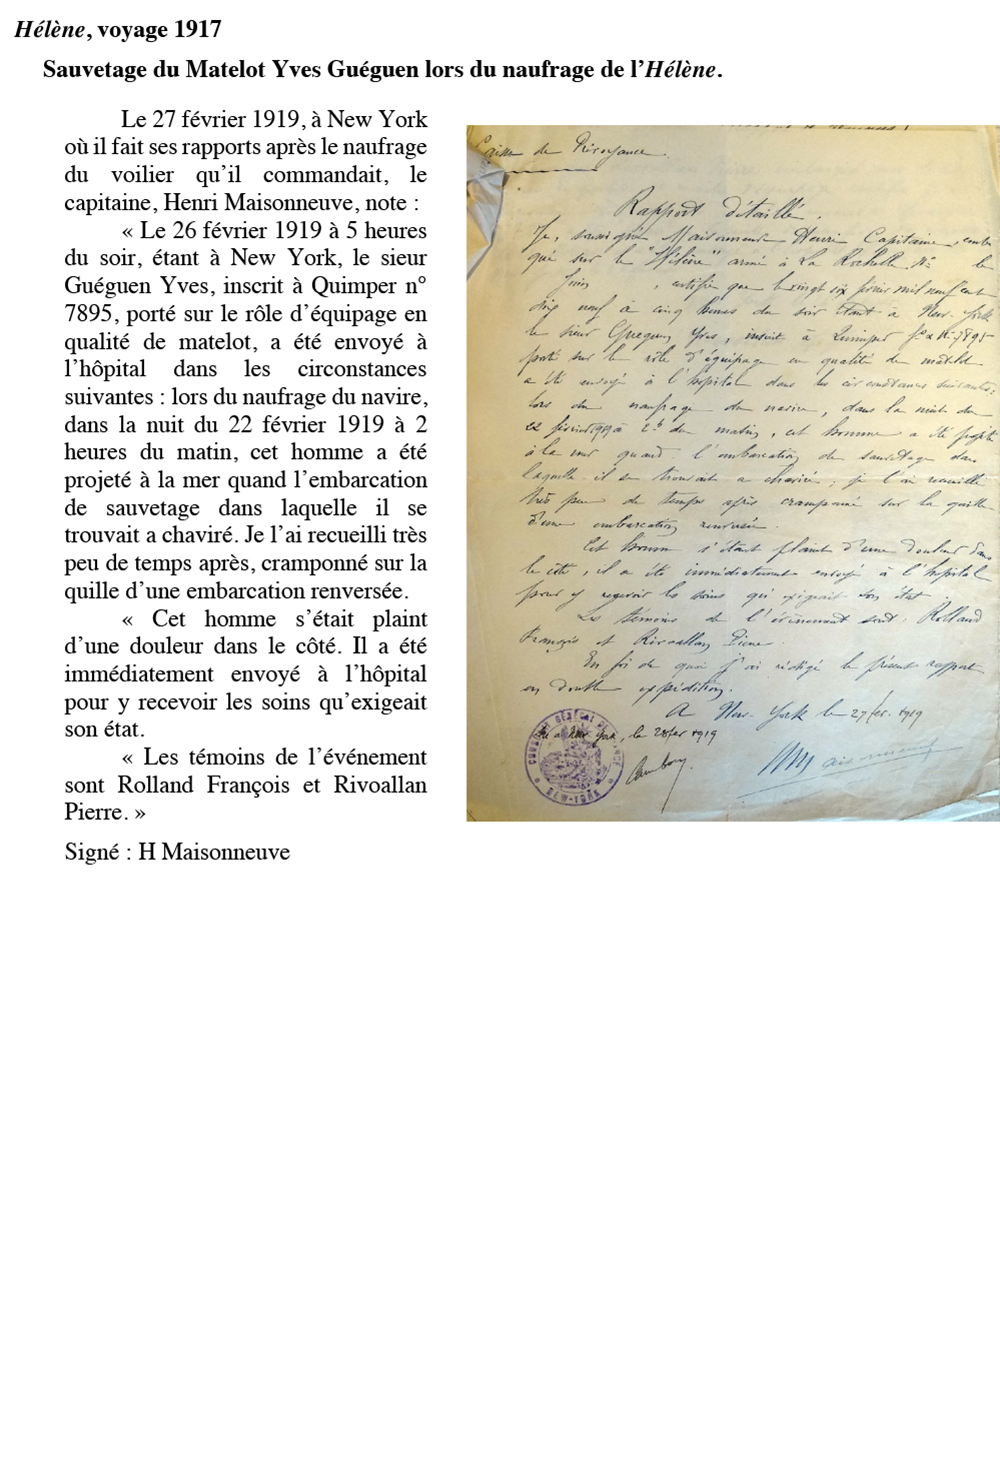 Hélène, voyage 1917
Sauvetage du Matelot Yves Guéguen lors du naufrage de l’Hélène.
Le 27 février 1919, à New York
où il fait ses rapports après le naufrage
du voilier qu’il commandait, le
capitaine, Henri Maisonneuve, note :
« Le 26 février 1919 à 5 heures
du soir, étant à New York, le sieur
Guéguen Yves, inscrit à Quimper n°
7895, porté sur le rôle d’équipage en
qualité de matelot, a été envoyé à
l’hôpital dans les circonstances
suivantes : lors du naufrage du navire,
dans la nuit du 22 février 1919 à 2
heures du matin, cet homme a été
projeté à la mer quand l’embarcation
de sauvetage dans laquelle il se
trouvait a chaviré. Je l’ai recueilli très
peu de temps après, cramponné sur la
quille d’une embarcation renversée.
« Cet homme s’était plaint
d’une douleur dans le côté. Il a été
immédiatement envoyé à l’hôpital
pour y recevoir les soins qu’exigeait
son état.
« Les témoins de l’événement
sont Rolland François et Rivoallan
Pierre. »
Signé : H Maisonneuve
Caisse de Prévoyance
Rapport détaillé.
Je, soussigné Maisonneuve Henri Capitaine, embar
qué sur le "Hélène" armé à La Rochelle N° le
Juin , certifie que le vingt six février mil neuf cent
dix neuf à cinq heures du soir étant à New-York
le sieur Gueguen Yves, inscrit à Quimper N° 7895
porté sur le rôle d'équipage en qualité de matelot
a été envoyé à l'hôpital dans les circonstances suivantes:
lors du naufrage du navire, dans la nuit du
22 février 1919 à 2h du matin, cet homme a été projeté
à la mer quand l'embarcation de sauvetage dans
laquelle il se trouvait a chaviré; je l'ai recueilli
très peu de temps après cramponné sur la quille
d'une embarcation renversée.
Cet homme s'étant plaint d'une douleur dans
le côté, il a été immédiatement envoyé à l'hôpital
pour y recevoir les soins qu'exigeait son état.
Les témoins de l'événement sont, Rolland
François et Rivoallan Pierre.
En foi de quoi j'ai rédigé le présent rapport
en double expédition.
A New-York le 27 fev. 1919
Vu à New York, le 28 fev 1919
Maisonneuve
CONSULAT GÉNÉRAL DE FRANCE
NEW-YORK